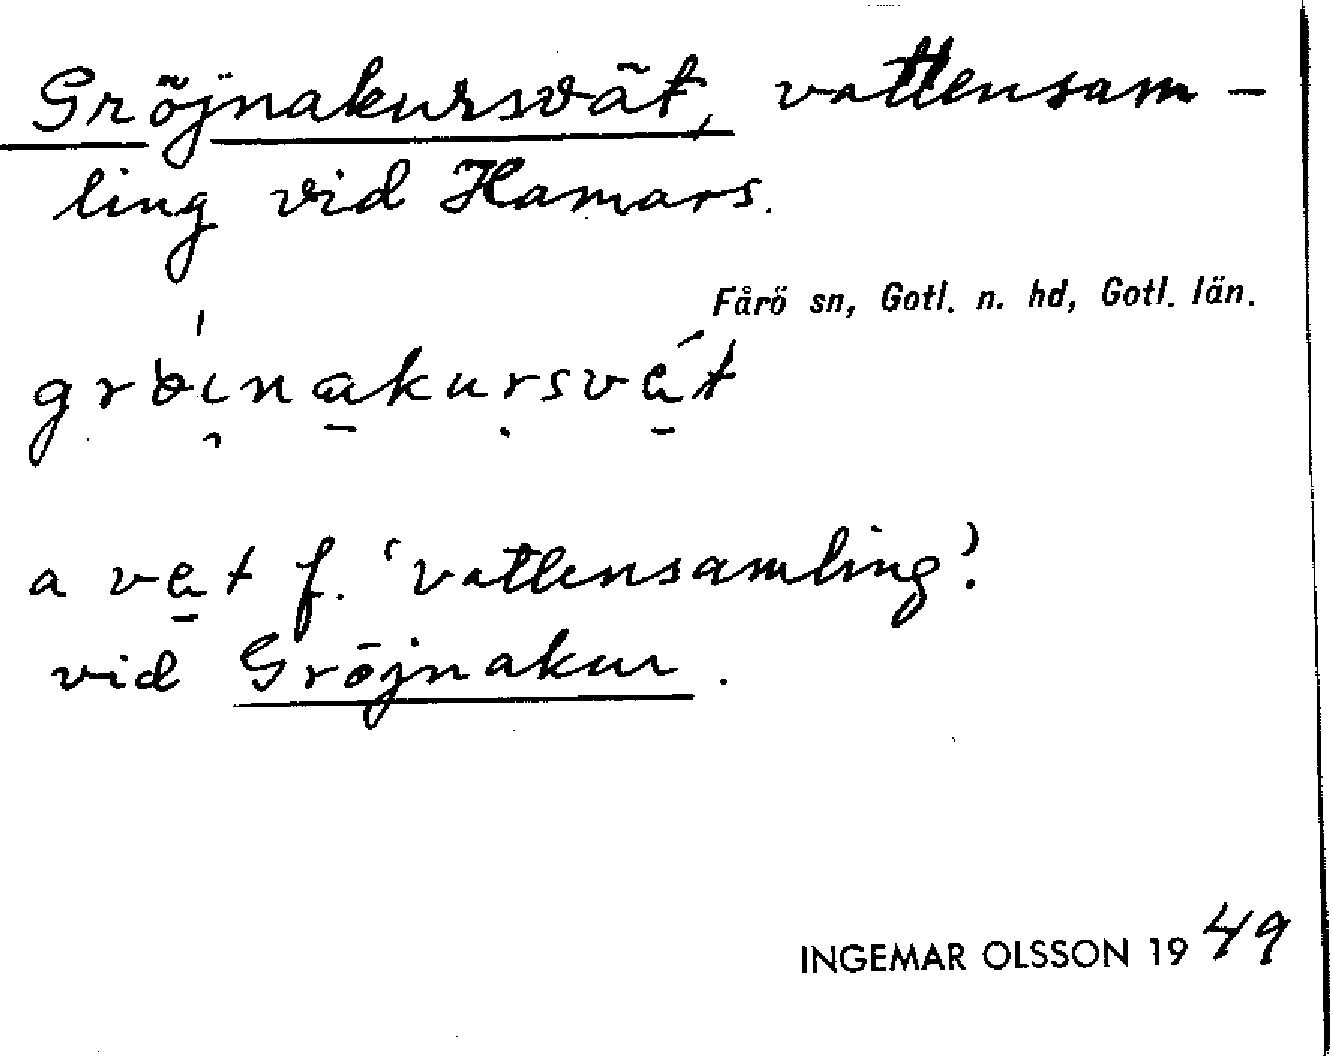 Gröjnakursvät, vattensam-
ling vid Hamars.
Fårö sn, Gotl. n. hd, Gotl. län.
a vät f. 'vattensamling'.
vid Gröjnakur.
INGEMAR OLSSON 1949